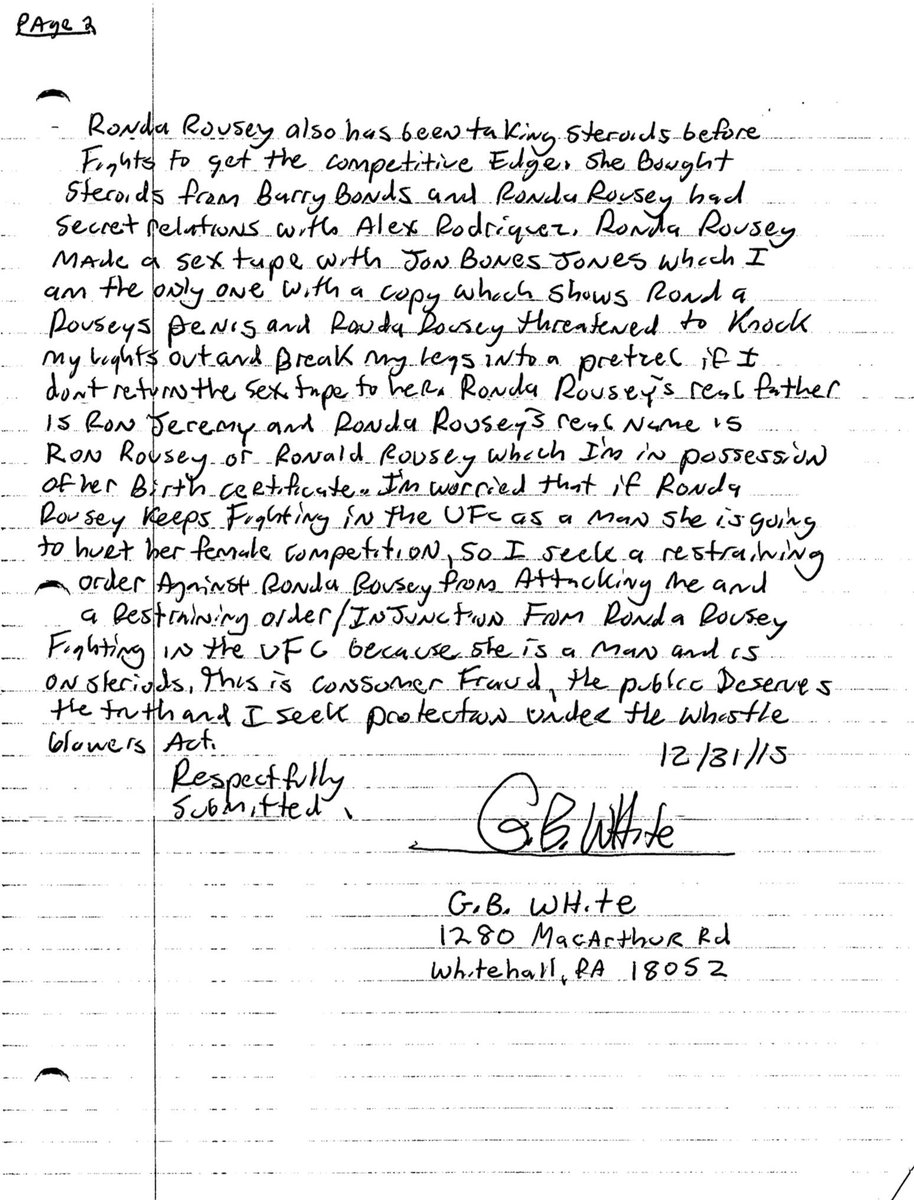 PAge 2
- Ronda Rousey also has been taking steroids before
Fights to get the competitive Edge. she Bought
Steroids from Barry Bonds and Ronda Rousey had
secret relations with Alex Rodriquez. Ronda Rousey
Made a sex tape with Jon Bones Jones which I
am the only one with a copy which shows Ronda
Rouseys penis and Ronda Rousey threatened to Knock
my lights out and Break my legs into a pretzel if I
dont return the sex tape to her. Ronda Rousey's real father
is Ron Jeremy and Ronda Rousey's real Name is
Ron Rousey or Ronald Rousey which I'm in possession
of her Birth certificate. I'm worried that if Ronda
Rousey Keeps Fighting in the UFC as a man she is going
to hurt her female competition, so I seek a restraining
order Against Ronda Rousey from Attacking me and
a Restraining order/INJunction From Ronda Rousey
Fighting in the UFC because she is a man and is
on steriods. This is conssumer Fraud, the public Deserves
the truth and I seek protection under the whistle
blowers Act.
12/31/15
Respectfully
Submitted,
G.B. White
G.B. WHite
1280 MacArthur Rd
Whitehall, PA 18052